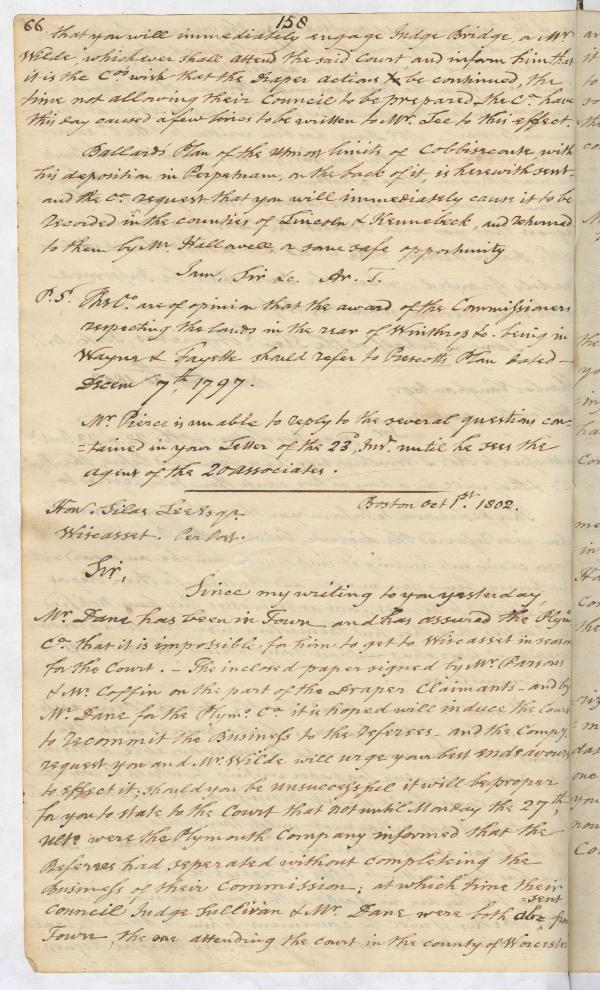 66 158
that you will immediately engage Judge Bridge, or Mr
Wilde, whichever shall attend the said Court and inform him that
it is the Co.s wish that the Draper actions be continued, the
time not allowing their Council to be prepared. The Co. have
this day caused a few lines to be written to Mr. Lee to this effect.
Ballard's Plan of the utmost limits of Cobbiseconte, with
his deposition in Perpetuam, on the back of it, is herewith sent-
and the Co. request that you will immediately cause it to be
recorded in the counties of Lincoln & Kennebeck, and returned
to them by Mr. Hallowell, or some safe opportunity
I am, Sir &c. Ar. T.
P.S. The Co. are of opinion that the award of the Commissioners
respecting the lands in the rear of Winthrop &c. being in
Wayne & Fayette should refer to Prescott's Plan dated -
Decem 7th, 1797.
Mr. Pierce is unable to reply to the several questions con-
=tained in your Letter of the 23d, Inst. until he sees the
agent of the 20 associates.
Hon. Silas Lee Esqr. Boston Oct 1st. 1802.
Wiscasset. Per Post.
Sir,
Since my writing to you yesterday,
Mr. Dane has been in Town, and has assured the Plymo
Co. that it is impossible for him to get to Wiscasset in season
for the Court. - The inclosed paper signed by Mr. Parsons
& Mr. Coffin on the part of the Draper Claimants - and by
Mr. Dane for the Plymo. Co. it is hoped will induce the Court
to recommit the Business to the referees - and the Compy.
request you and Mr. Wilde will urge your best endeavours
to effect it; should you be unsuccessful it will be proper
for you to state to the Court that not until Monday the 27th,
ulto were the Plymouth Company informed that the
Referees had seperated without compleating the
business, of their Commission; at which time their
Council Judge Sullivan & Mr. Dane were both abz =sent from
Town, the one attending the court in the county of Worcester